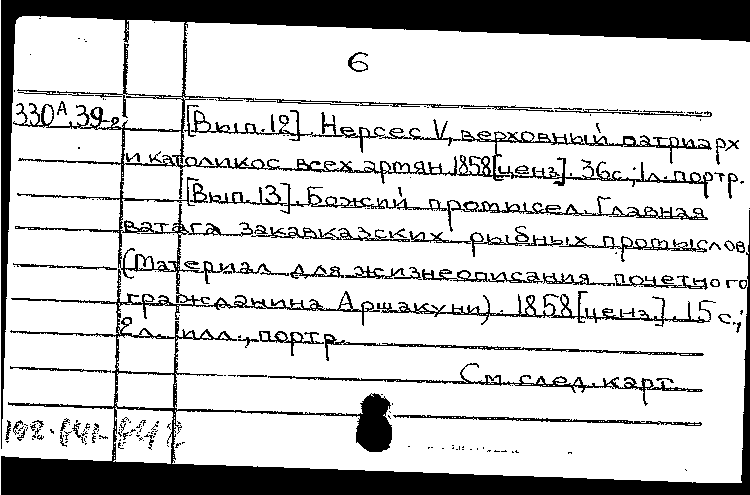 6
330А.39-г. [Вып.12]. Нерсес V, верховный патриарх
и католикос всех армян. 1858 [ценз]. 36с.; 1л. портр.
[Вып. 13]. Божий промысел. Главная
ватага закавказских рыбных промыслов.
(Материал для жизнеописания почетного
гражданина Аршакуни). 1858 [ценз.]. 15 с.;
2 л. илл., портр.
См. след. карт.
192.841-842